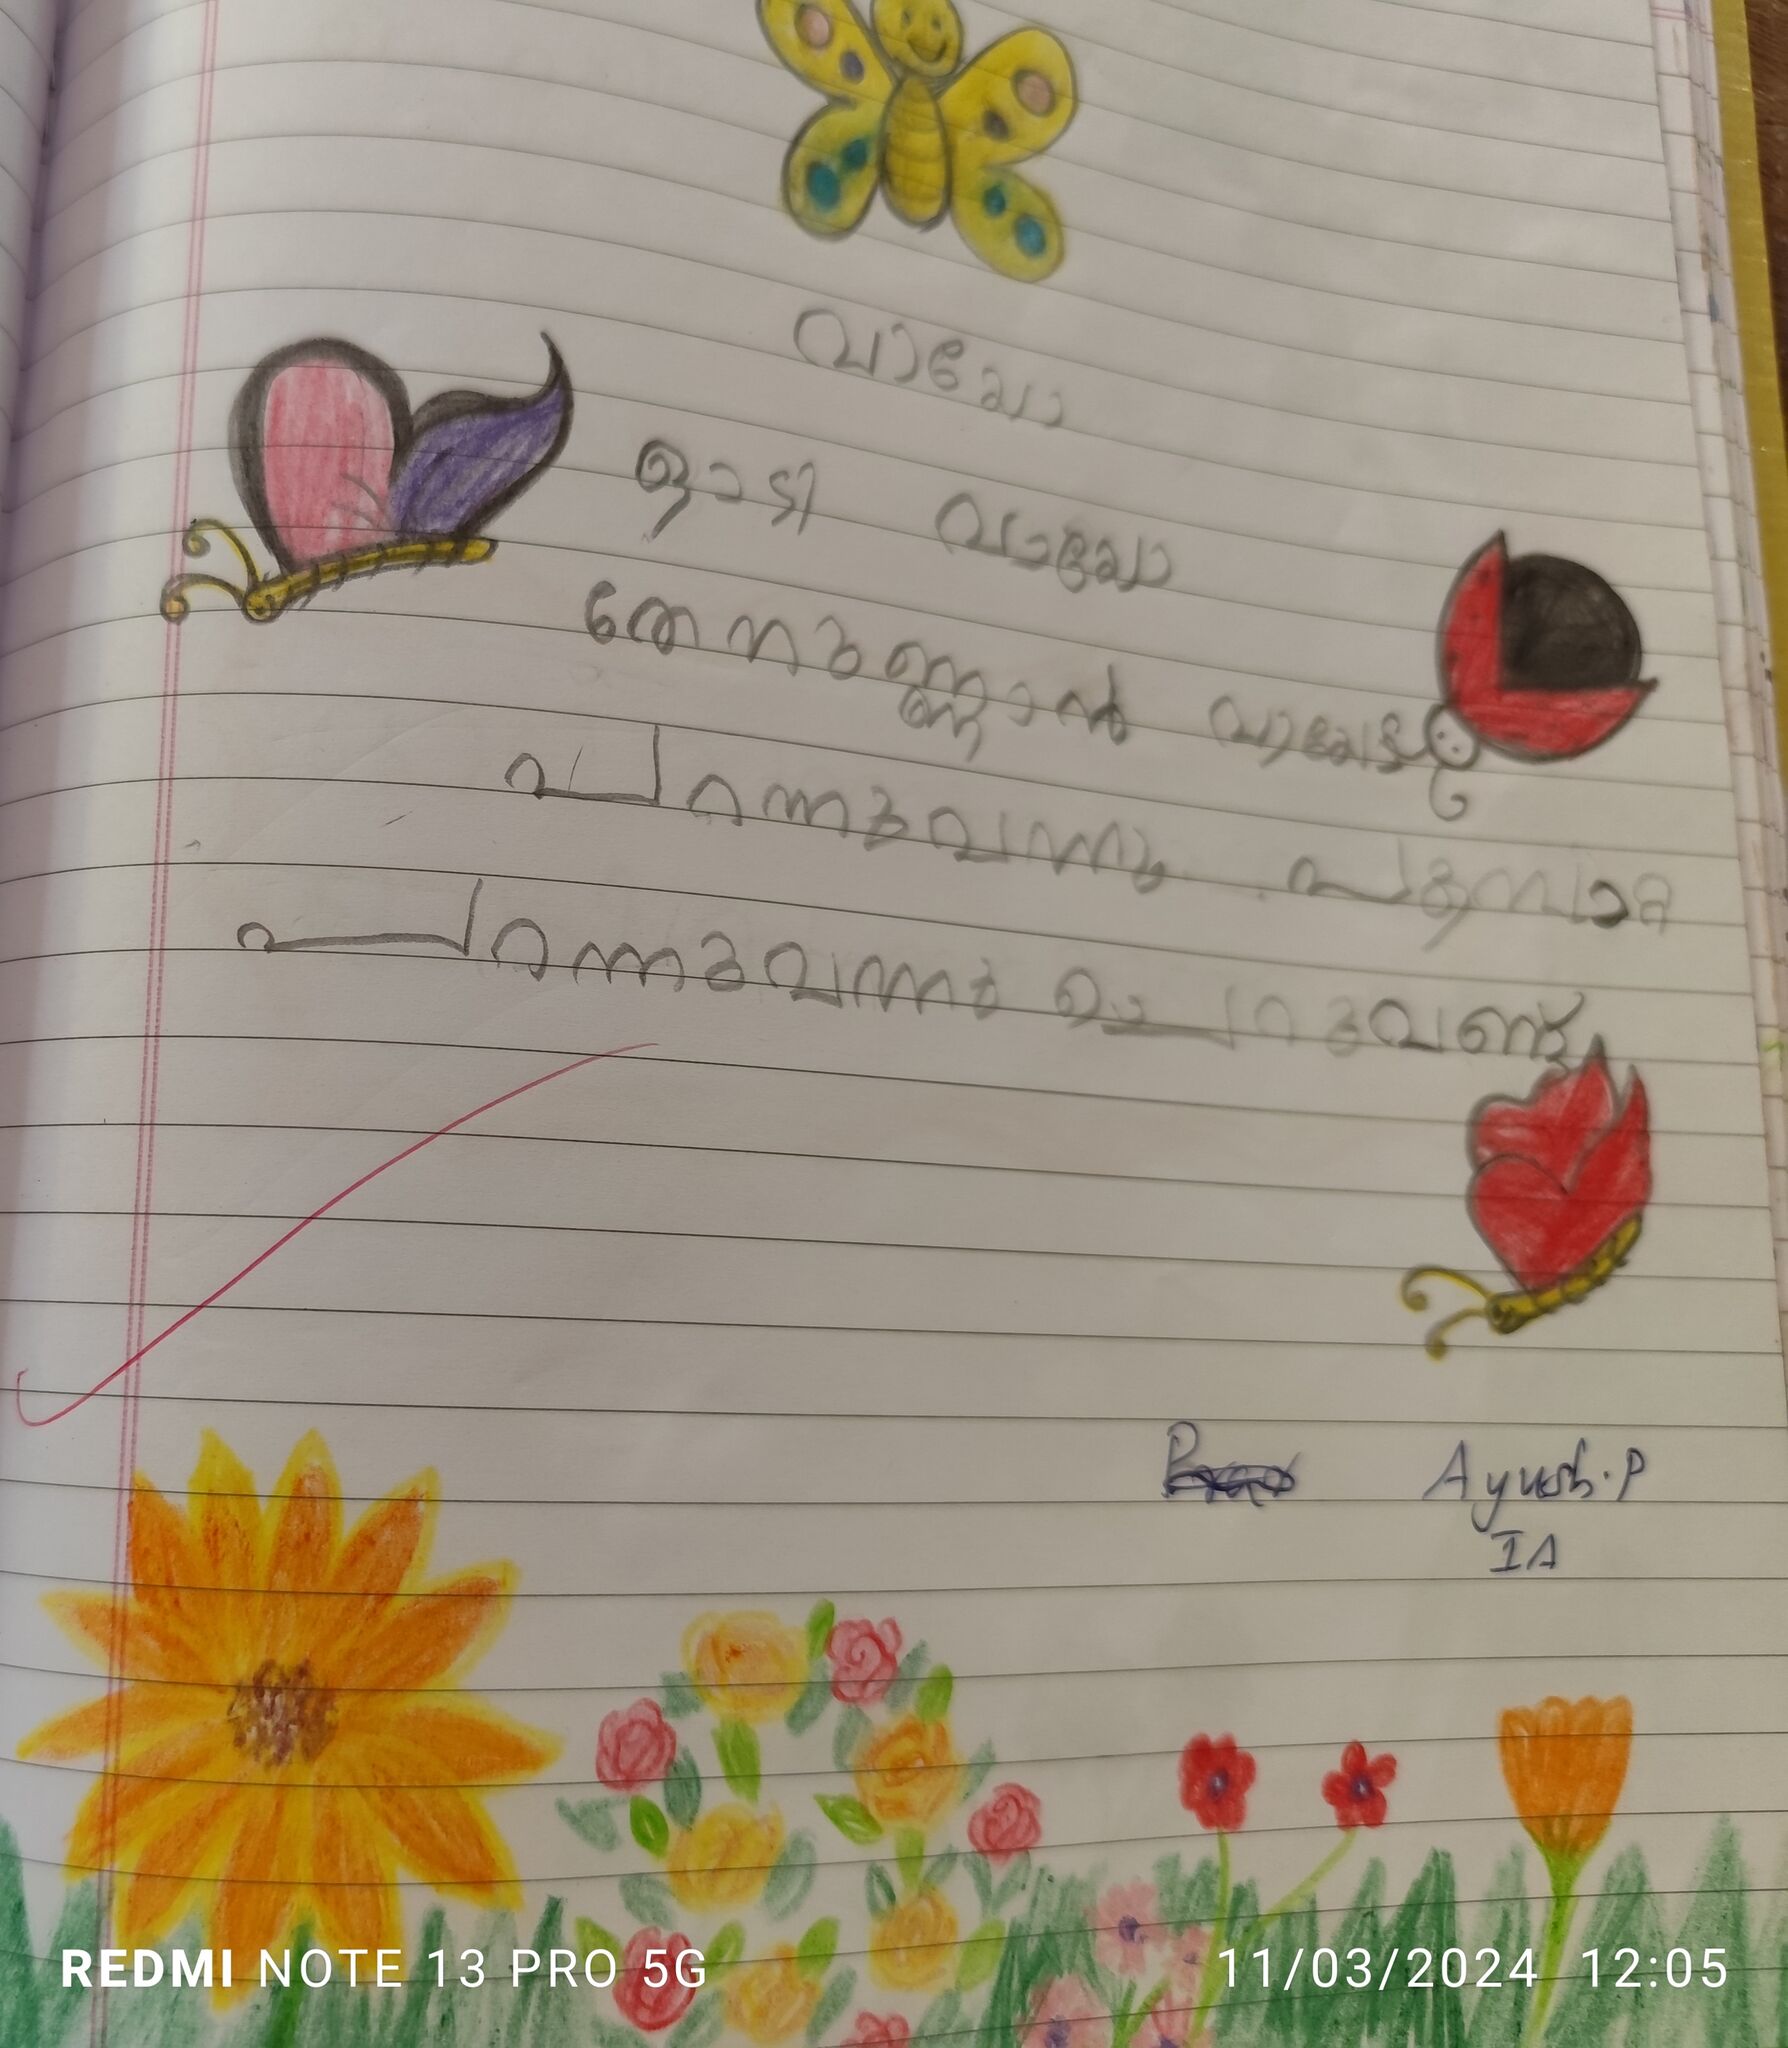 വായോ
ഓടി വായോ
തേനുണ്ണാൻ വായോ
പറന്നുവന്നു പൂമ്പാറ്റ
പറന്നുവന്നു ചെറുവണ്ട്
Ayush.P
IA
REDMI NOTE 13 PRO 5G
11/03/2024 12:05